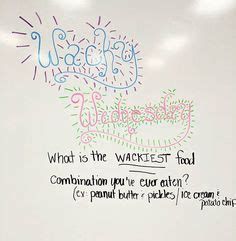 Wacky
Wednesday
What is the WACKIEST food
combination you've ever eaten?
(ex: peanut butter & pickles / ice cream &
potato chip